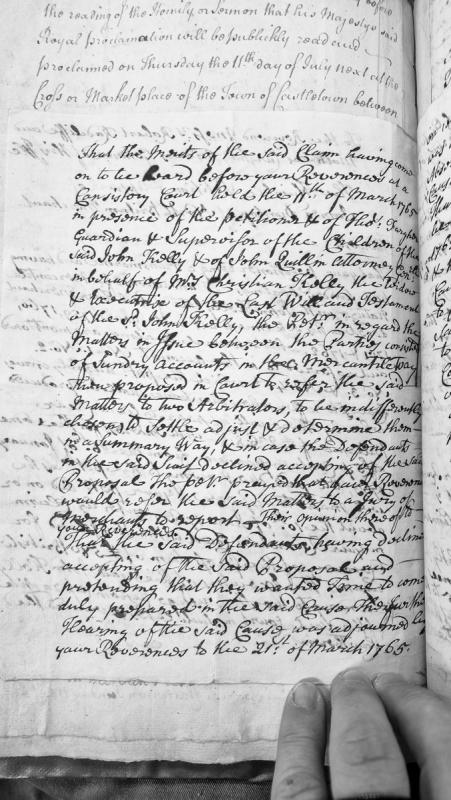 the reading of the Homily or Sermon that his Majestys said
Royal proclamation will be publickly read and
proclaimed on Thursday the 11th day of July next at the
Cross or Market place of the Town of Castletown between
That the Merits of the said Claim having come
on to be heard before your Reverences at a
Consistory Court held the 11th of March 1765
in presence of the petitioner & of Thos.
Guardian & Supervisor of the Children of the
said John Kelly & of John Quillin Attorney
in behalf of Mrs Christian Kelly the Widow
& Executrix of the Last Will and Testament
of the sd. John Kelly, the Petr. in regard the
Matters in Issue between the Parties consisted
of Sundry Accounts in the Mercantile Way
then proposed in Court to refer the said
Matters to two Arbitrators, to be indifferently
chosen, to Settle adjust & determine them
in a Summary Way, & in case the Defendants
in the said Suit declined accepting of the said
Proposal the petr. prayed that your Reverences
would refer the said Matters to a Jury of
Merchants to report their opinion thereof to
your Reverences
That the said Defendants having declined
accepting of the said Proposal and
pretending that they wanted Time to come
duly prepared in the said Cause The further
Hearing of the said Cause was adjourned by
your Reverences to the 21st of March 1765.